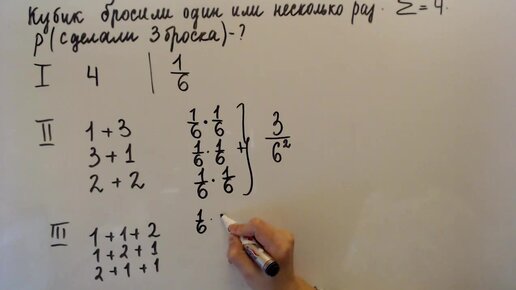 Кубик бросили один или несколько раз. Σ = 4.
P(сделали 3 броска) - ?
I 4 | 1/6
II 1 + 3 1/6 · 1/6
3 + 1 1/6 · 1/6 + 3/6²
2 + 2 1/6 · 1/6
III 1 + 1 + 2 1/6 ·
1 + 2 + 1
2 + 1 + 1